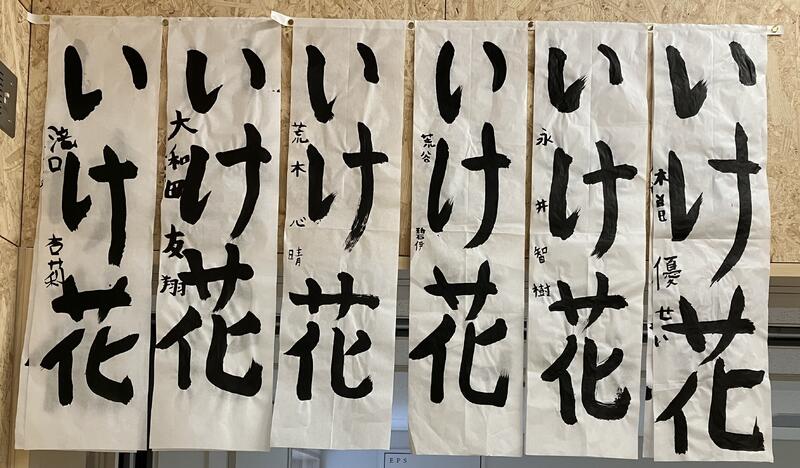 いけ花
木曽 優せい
いけ花
永井智樹
いけ花
荒谷 碧伊
いけ花
荒木心晴
いけ花
大和田 友翔
いけ花
滝口 杏莉
EPS